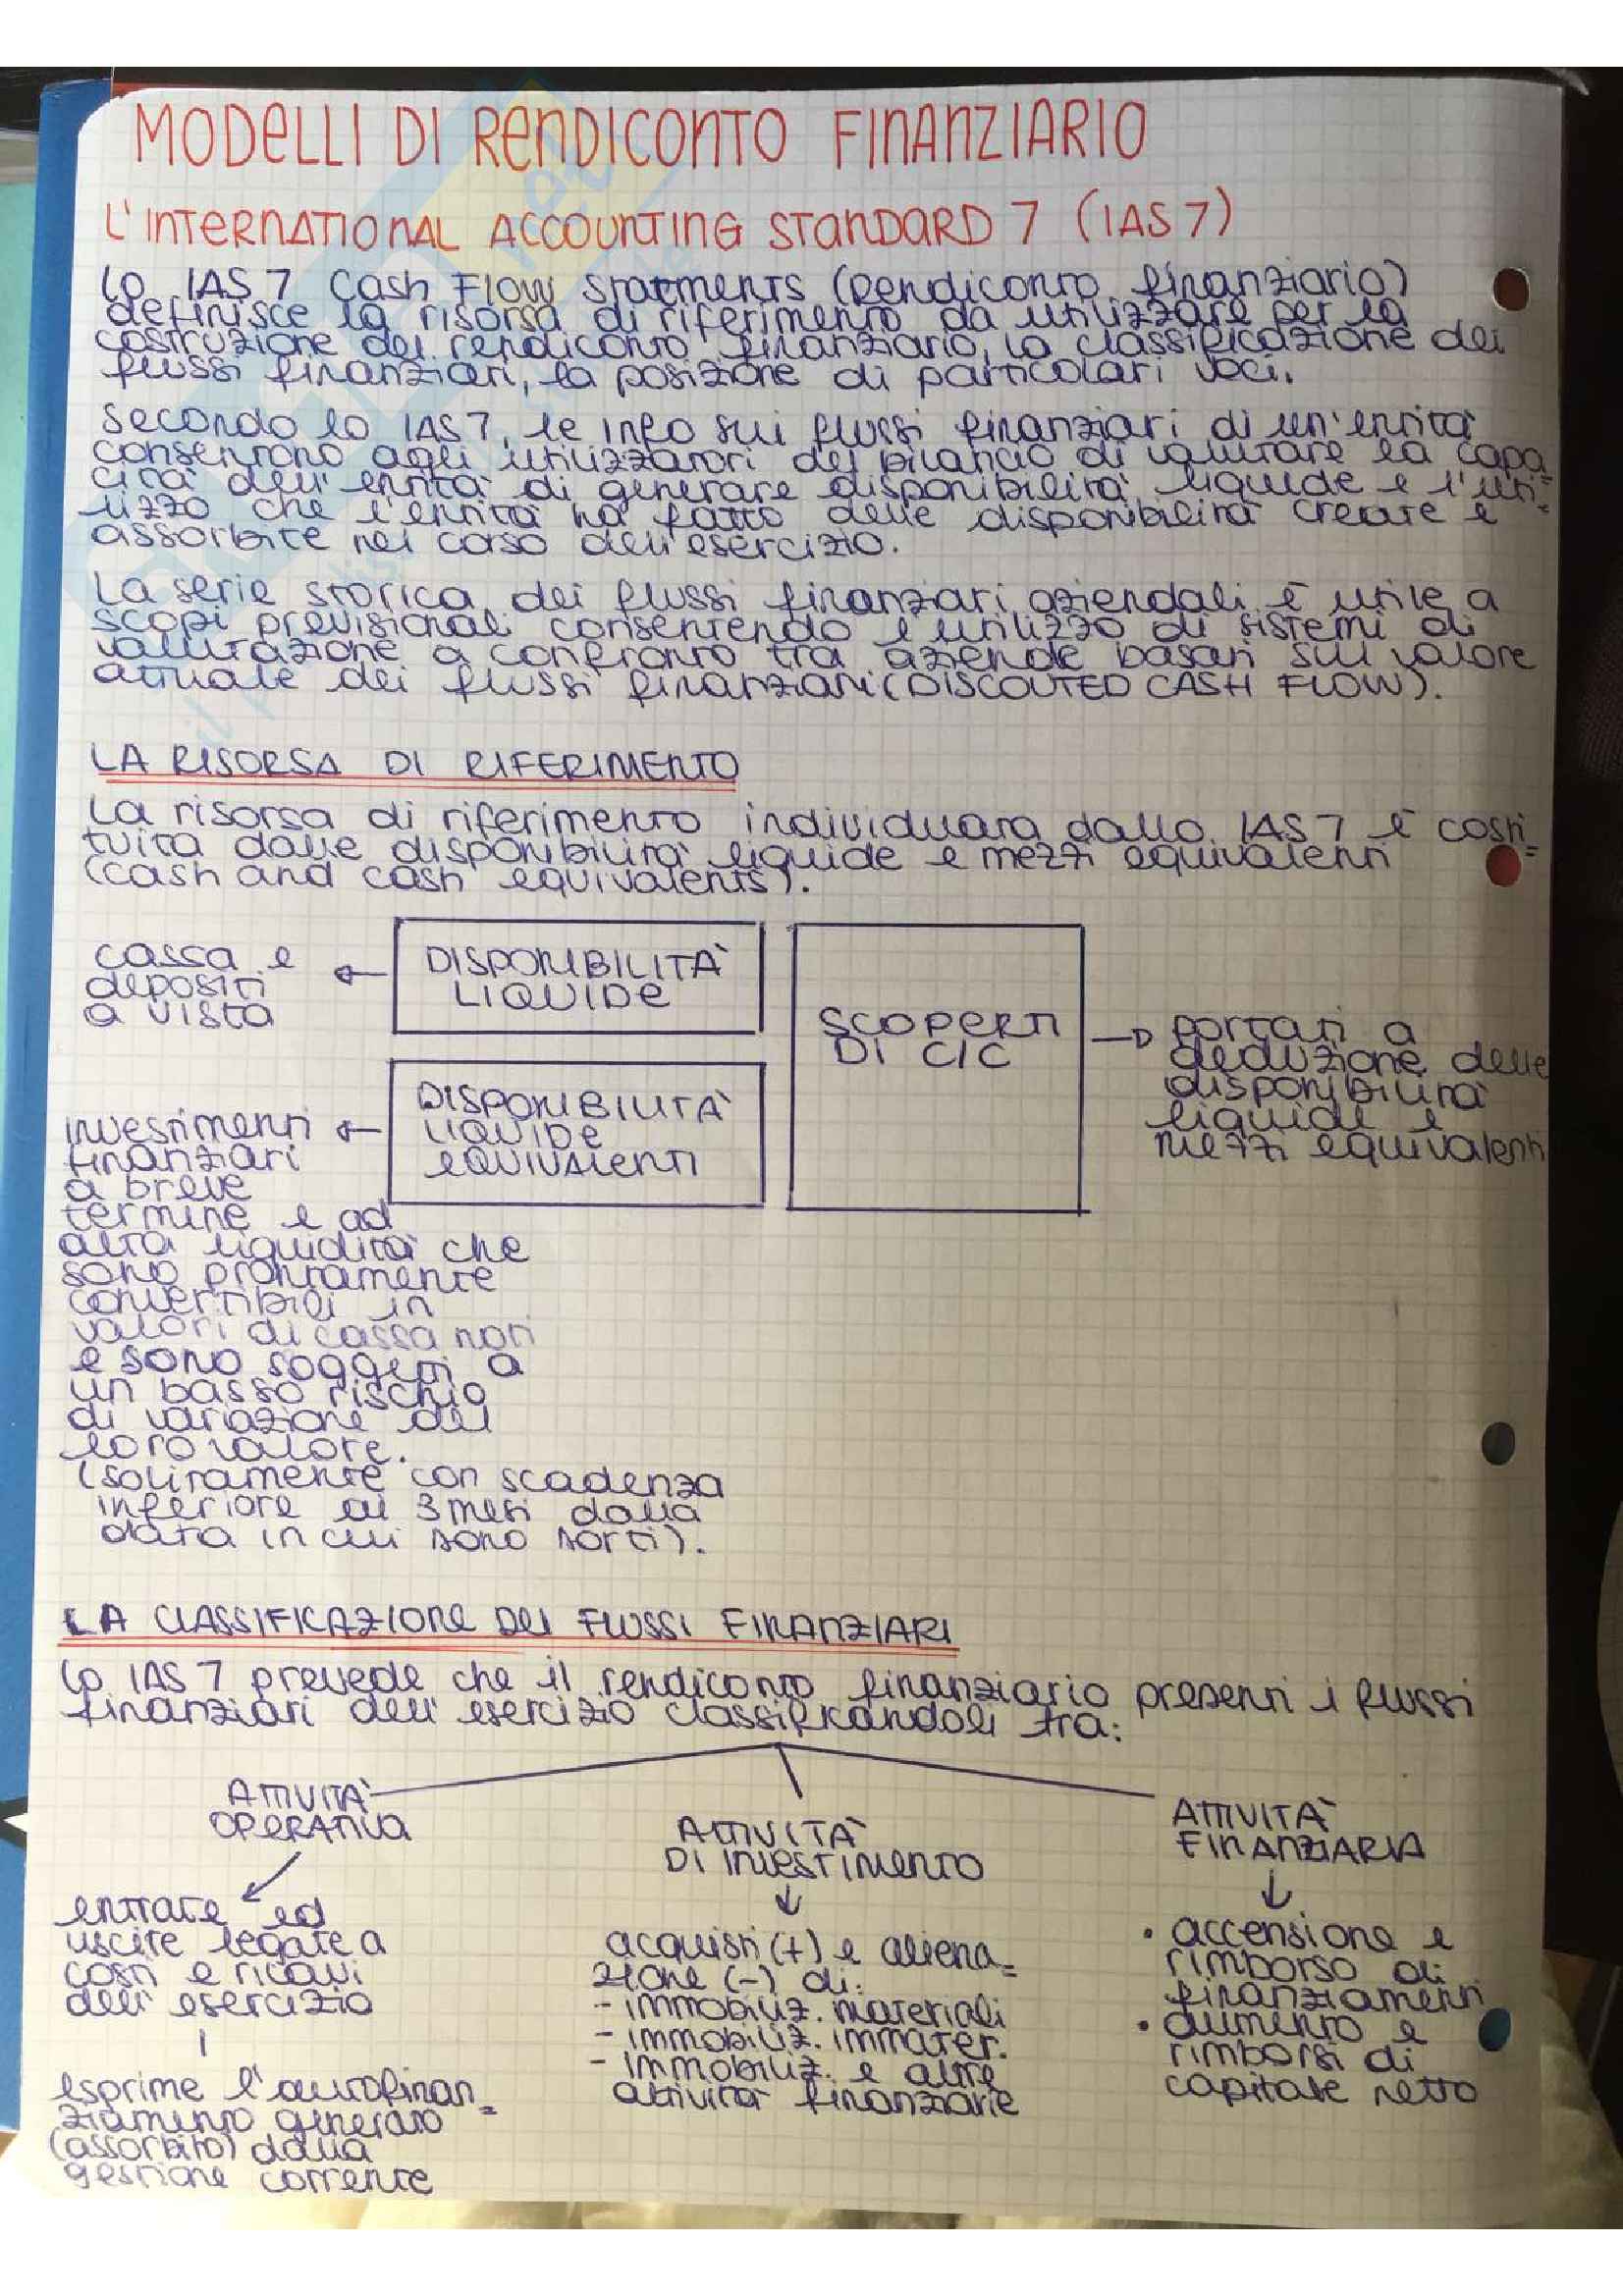 MODELLI DI RENDICONTO FINANZIARIO
L'INTERNATIONAL ACCOUNTING STANDARD 7 (IAS 7)
Lo IAS 7 Cash Flow Statments (Rendiconto finanziario)
definisce la risorsa di riferimento da utilizzare per la
costruzione del rendiconto finanziario, la classificazione dei
flussi finanziari, la posizione di particolari voci.
Secondo lo IAS 7, le info sui flussi finanziari di un'entità
consentono agli utilizzatori del bilancio di valutare la capa=
cità dell'entità di generare disponibilità liquide e l'uti=
lizzo che l'entità ha fatto delle disponibilità create e
assorbite nel corso dell'esercizio.
La serie storica dei flussi finanziari aziendali è utile a
scopi previsionali consentendo l'utilizzo di sistemi di
valutazione a confronto tra aziende basati sul valore
attuale dei flussi finanziari (DISCOUTED CASH FLOW).
LA RISORSA DI RIFERIMENTO
La risorsa di riferimento individuata dallo IAS 7 è costi=
tuita dalle disponibilità liquide e mezzi equivalenti
(cash and cash equivalents).
cassa e
depositi
a vista
DISPONIBILITÀ
LIQUIDE
SCOPERTI
DI C/C
portati a
deduzione delle
disponibilità
liquide e
mezzi equivalenti
DISPONIBILITÀ
LIQUIDE
EQUIVALENTI
investimenti
finanziari
a breve
termine e ad
alta liquidità che
sono prontamente
convertibili in
valori di cassa non
e sono soggetti a
un basso rischio
di variazione del
loro valore.
(solitamente con scadenza
inferiore ai 3 mesi dalla
data in cui sono sorti).
LA CLASSIFICAZIONE DEI FLUSSI FINANZIARI
Lo IAS 7 prevede che il rendiconto finanziario presenti i flussi
finanziari dell'esercizio classificandoli tra:
ATTIVITÀ
OPERATIVA
entrate ed
uscite legate a
costi e ricavi
dell'esercizio
esprime l'autofinan=
ziamento generato
(assorbito) dalla
gestione corrente
ATTIVITÀ
DI INVESTIMENTO
acquisti (+) e aliena=
zione (-) di:
- immobiliz. materiali
- immobiliz. immater.
- immobiliz. e altre
attività finanziarie
ATTIVITÀ
FINANZIARIA
• accensione e
rimborso di
finanziamenti
• aumento e
rimborsi di
capitale netto